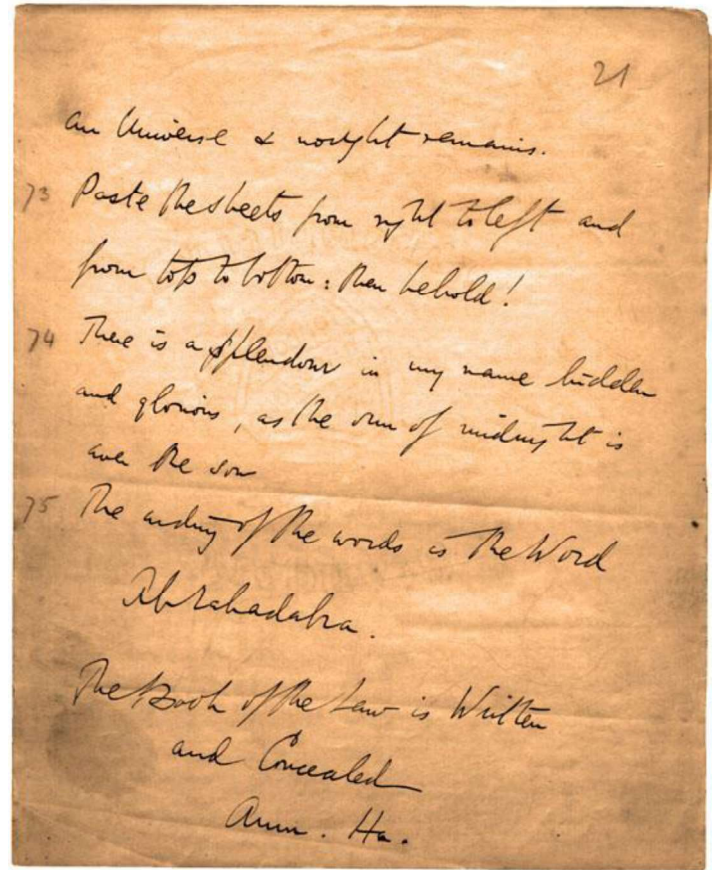 21
an Universe & nought remains.
73 Paste the sheets from right to left and
from top to bottom: then behold!
74 There is a splendour in my name hidden
and glorious, as the sun of midnight is
ever the son
75 The ending of the words is the Word
Abrahadabra.
The Book of the Law is Written
and Concealed
Aum. Ha.